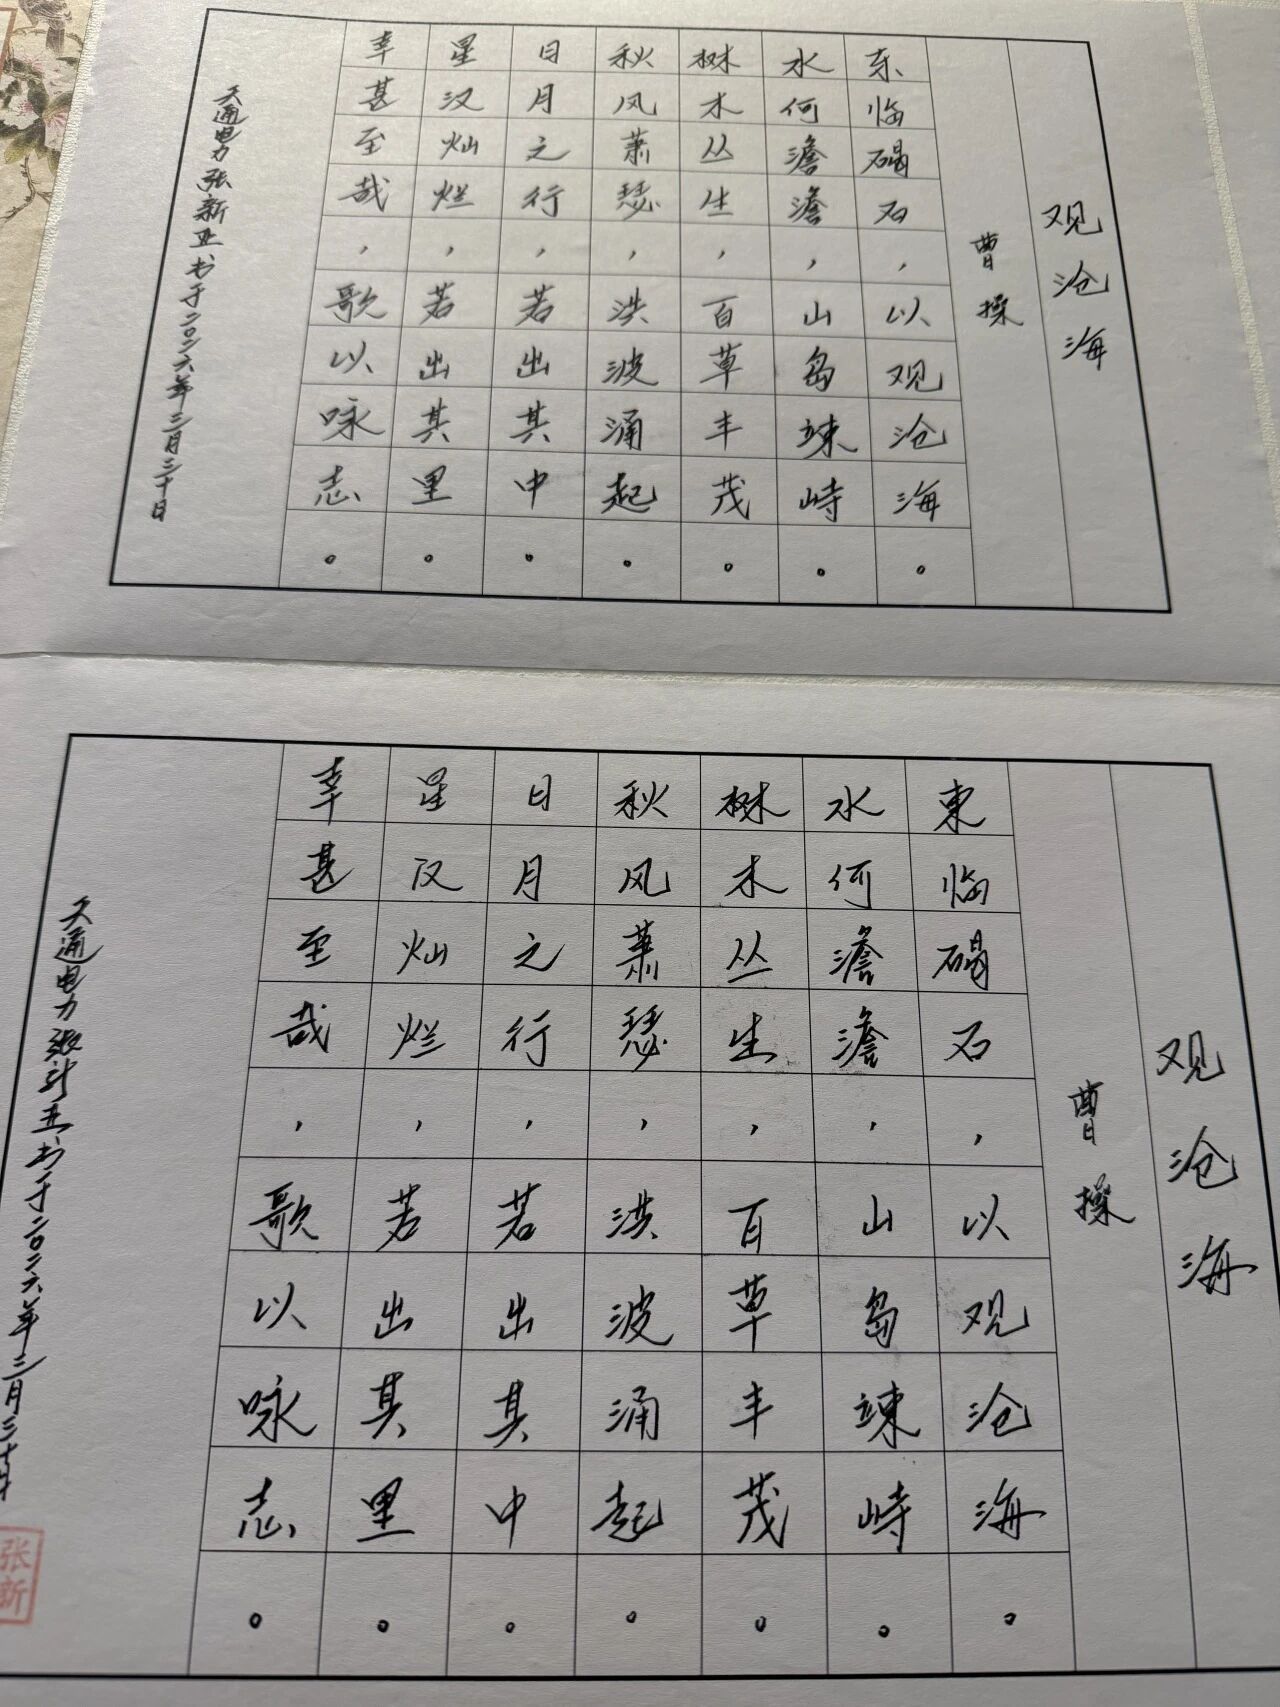 观沧海
曹操
东临碣石，以观沧海。
水何澹澹，山岛竦峙。
树木丛生，百草丰茂。
秋风萧瑟，洪波涌起。
日月之行，若出其中。
星汉灿烂，若出其里。
幸甚至哉，歌以咏志。
天通电力张新亚书于二〇二六年三月三十日
观沧海
曹操
東临碣石，以观沧海。
水何澹澹，山岛竦峙。
树木丛生，百草丰茂。
秋风萧瑟，洪波涌起。
日月之行，若出其中。
星汉灿烂，若出其里。
幸甚至哉，歌以咏志。
天通电力张新亚书于二〇二六年三月三十日
张新